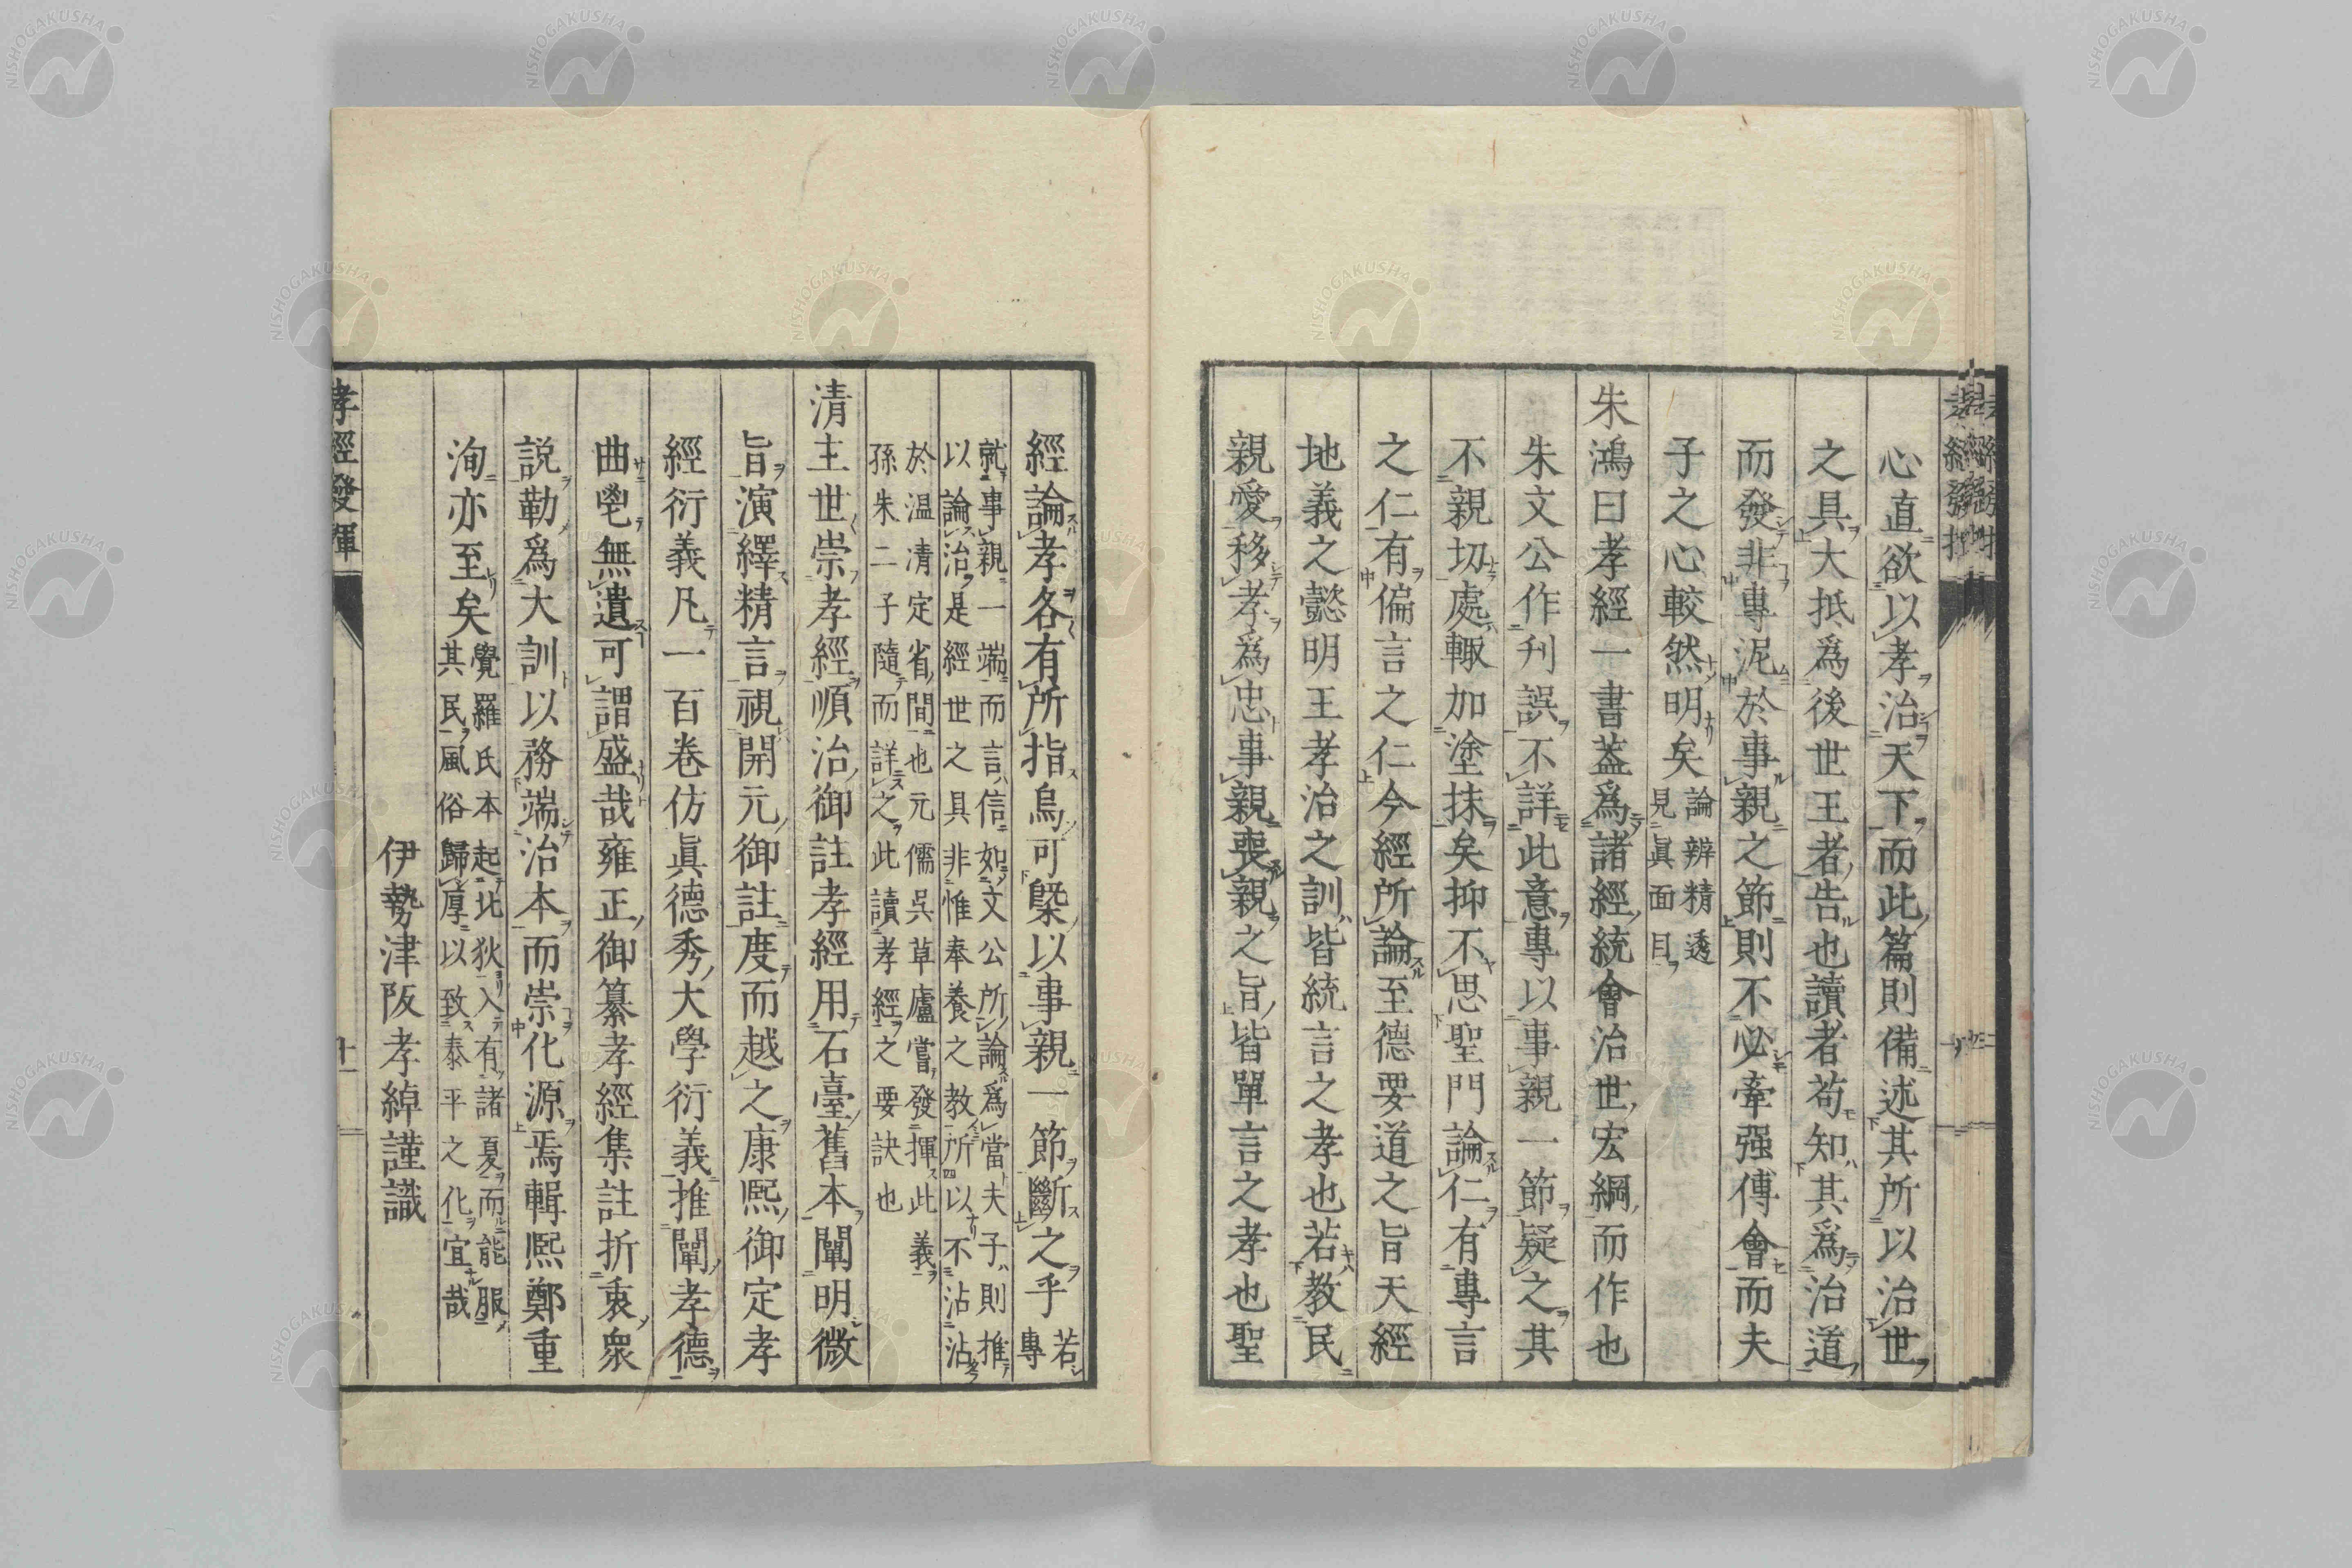 心直欲以孝治天下而此篇則備述其所以治世
之具大抵爲後世王者告也讀者苟知其爲治道
而發非專泥於事親之節則不必牽强傅會而夫
子之心較然明矣論辨精透
見眞面目
朱鴻曰孝經一書葢爲諸經統會治世宏綱而作也
朱文公作刋誤不詳此意專以事親一節疑之其
不親切處輙加塗抹矣抑不思聖門論仁有專言
之仁有偏言之仁今經所論至德要道之旨天經
地義之懿明王孝治之訓皆統言之孝也若教民
親愛移孝爲忠事親喪親之旨皆單言之孝也聖
經論孝各有所指烏可槩以事親一節斷之乎若
專
就事親一端而言信如文公所論爲當夫子則推
以論治是經世之具非惟奉養之教所以不沾沾
於温清定省間也元儒呉草廬嘗發揮此義
孫朱二子隨而詳之此讀孝經之要訣也
清主世崇孝經順治御註孝經用石臺舊本闡明微
旨演繹精言視開元御註度而越之康熙御定孝
經衍義凡一百卷仿眞德秀大學衍義推闡孝德
曲鬯無遺可謂盛哉雍正御纂孝經集註折衷衆
説勒爲大訓以務端治本而崇化源焉輯熙鄭重
洵亦至矣覺羅氏本起北狄入有諸夏而能服
其民風俗歸厚以致泰平之化宜哉
伊勢津阪孝綽謹識
孝經發揮
十一
NISHOGAKUSHA